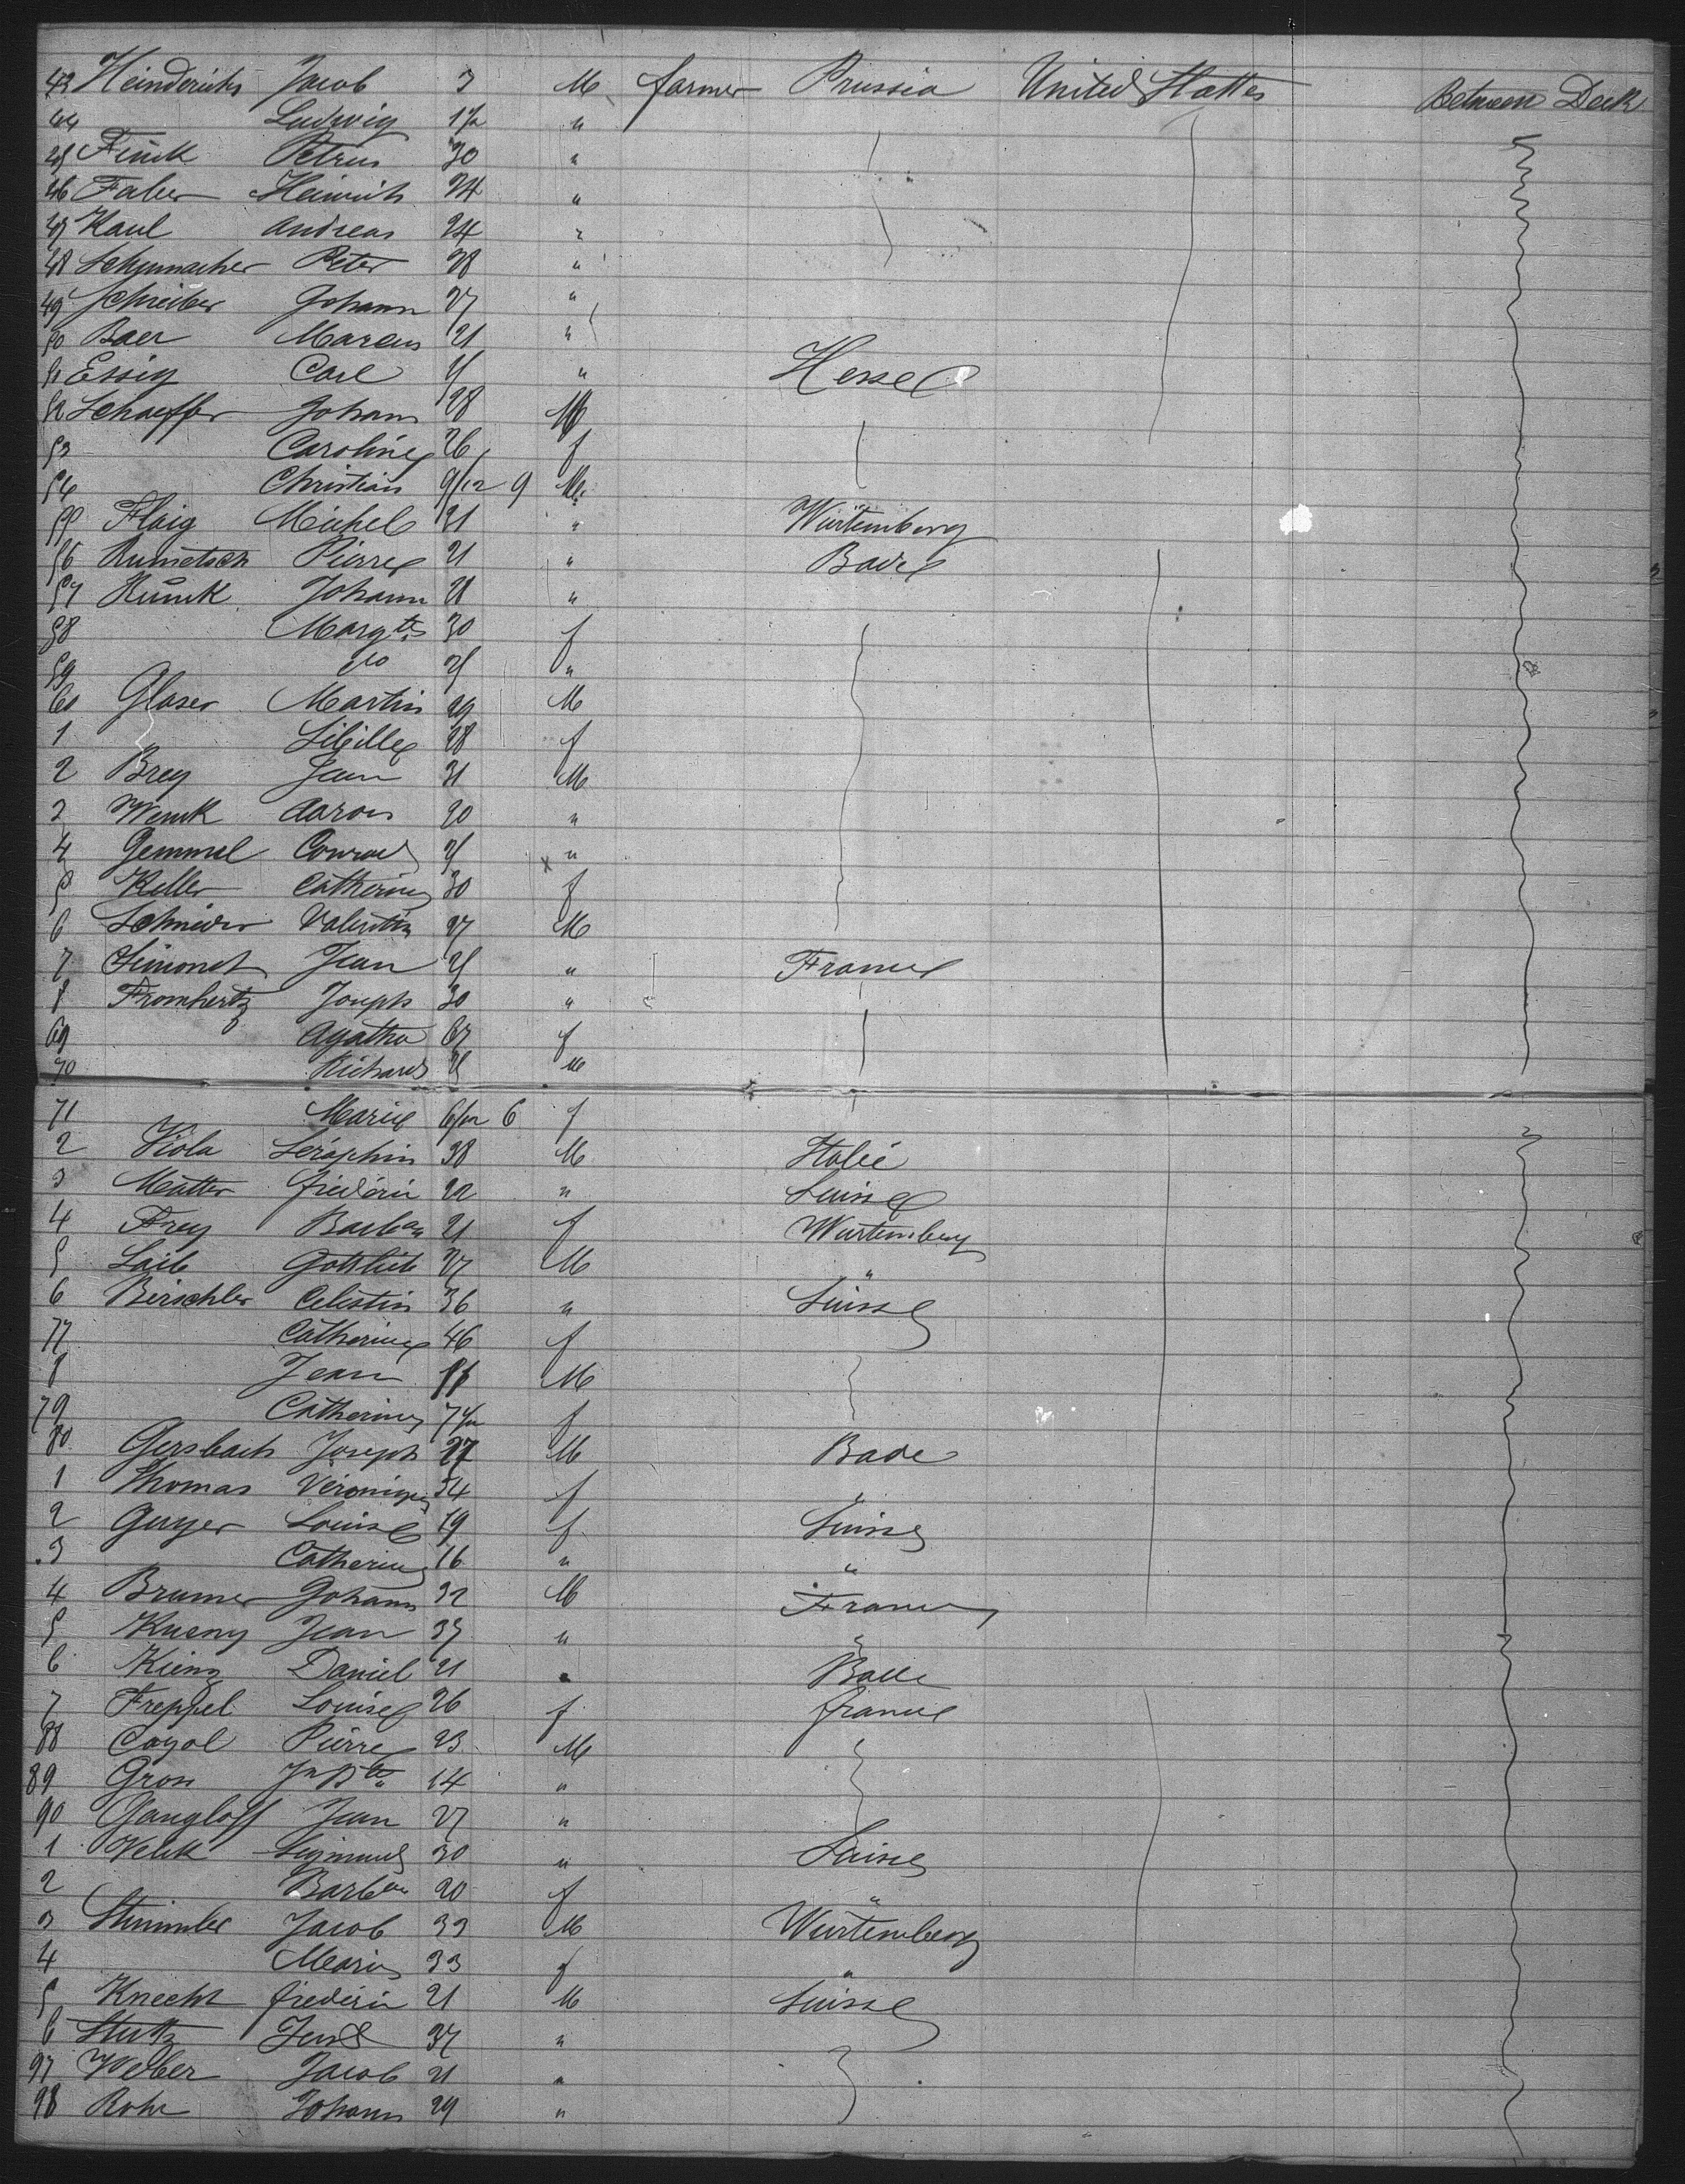 43 Heinderichs Jacob 3 M farmer Prussia United States Between Deck
44 Ludwig "
45 Finck Petrus 30 "
46 Faber Heinrich 24 "
47 Kaul Andreas 24 "
48 Schumacher Peter 28 "
49 Schreiber Johann 27 "
50 Baer Marcus 21 "
51 Essig Carl " Hesse
52 Schaeffer Johann 28 M
53 Caroline 26 f
54 Christian 9/12 9 M
55 Flaig Michel 21 " Würtemberg
56 Rumetsch Pierre 21 " Bade
57 Johann 21 "
58 Margte 30 f
59 do "
60 Glaser Martin 29 M
1 Sibille 28 f
2 Brey Jean 31 M
3 Wenk Aaron 20 "
4 Gemmel Conrad "
5 Keller Catherine 30 f
6 Schnider Valentin 27 M
7 Simonet Jean " France
8 Fromhertz Joseph 30 "
69 Agatha 67 f
70 Richard M
71 Marie 6/12 6 f
2 Viola Seraphin 38 M Italie
3 Mutter Frederic 22 " Suisse
4 Frey Barbara 21 f Wurtemberg
5 Laib Gottlieb 27 M "
6 Birschler Celestin 36 " Suisse
77 Catherine 46 f
8 Jean 11 M
79 Catherine f
80 Gersbach Joseph 27 M Bade
1 Thomas Veronique 54 f "
2 Guyer Louise 19 f Suisse
3 Catherine 16 " "
4 Brumer Johann 32 M France
5 Kueny Jean 37 " "
6 Kienz Daniel 21 " Bade
7 Freppel Louise 26 f france
88 Cayol Pierre 23 M
89 Gross Jn Bte 14 "
90 Gangloff Jean 27 "
1 Velik Sigmund 30 " Suisse
2 Barbara 20 f "
3 Stimmler Jacob 33 M Würtemberg
4 Marie 33 f "
5 Knecht frederic 21 M Suisse
6 Stutz 37 "
97 Weber Jacob 21 "
98 Rohr Johann 29 "